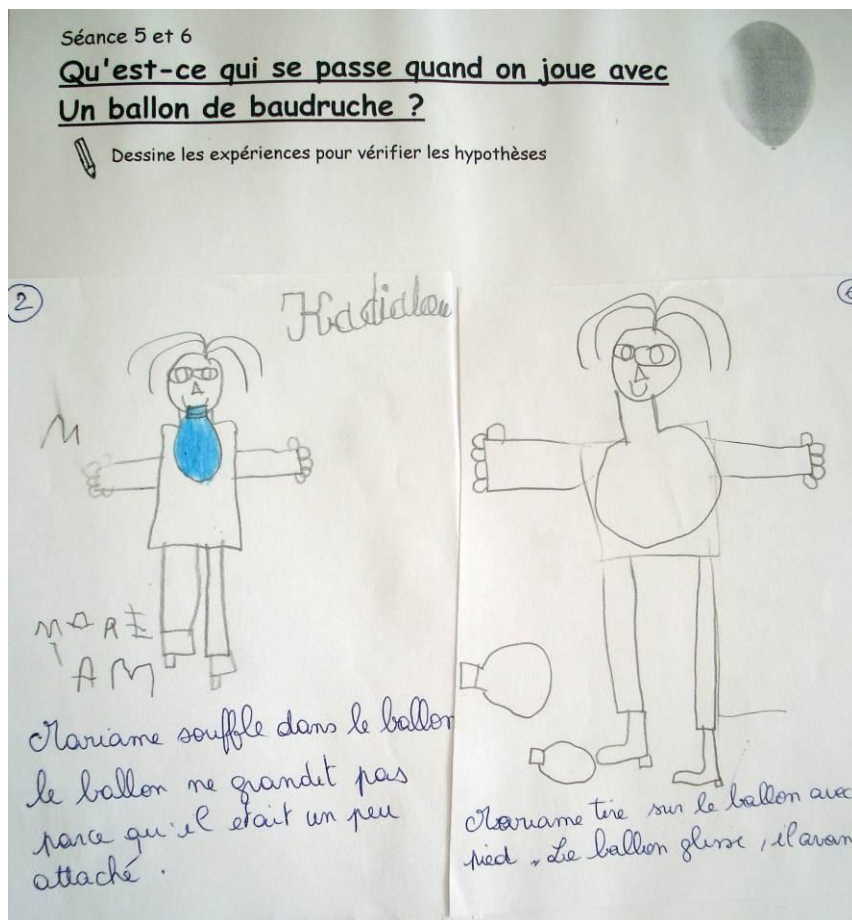 Séance 5 et 6
Qu'est-ce qui se passe quand on joue avec
Un ballon de baudruche ?
Dessine les expériences pour vérifier les hypothèses
2
Kadialou
M
MARI
AM
Mariame souffle dans le ballon
le ballon ne grandit pas
parce qu'il etait un peu
attaché.
Mariame tire sur le ballon avec
pied. Le ballon glisse, il avan